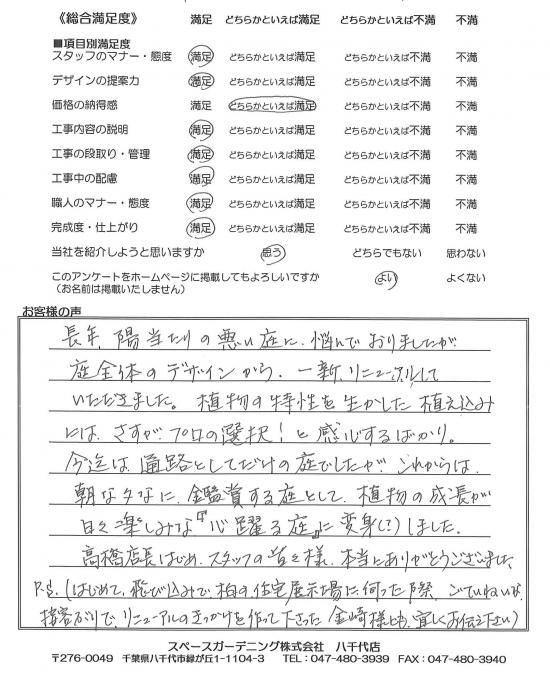 《総合満足度》 満足 どちらかといえば満足 どちらかといえば不満 不満
■項目別満足度
スタッフのマナー・態度 満足 どちらかといえば満足 どちらかといえば不満 不満
デザインの提案力 満足 どちらかといえば満足 どちらかといえば不満 不満
価格の納得感 満足 どちらかといえば満足 どちらかといえば不満 不満
工事内容の説明 満足 どちらかといえば満足 どちらかといえば不満 不満
工事の段取り・管理 満足 どちらかといえば満足 どちらかといえば不満 不満
工事中の配慮 満足 どちらかといえば満足 どちらかといえば不満 不満
職人のマナー・態度 満足 どちらかといえば満足 どちらかといえば不満 不満
完成度・仕上がり 満足 どちらかといえば満足 どちらかといえば不満 不満
当社を紹介しようと思いますか 思う どちらでもない 思わない
このアンケートをホームページに掲載してもよろしいですか よい よくない
(お名前は掲載いたしません)
お客様の声
長年、陽当たりの悪い庭に、悩んでおりましたが
庭全体のデザインから、一新、リニューアルして
いただきました。植物の特性を生かした植え込み
には、さすが、プロの選択!と感心するばかり。
今迄は、通路としてだけの庭でしたが、これからは、
朝な夕なに、鑑賞する庭として、植物の成長が
日々楽しみな『心躍る庭』に変身(!?)しました。
高橋店長はじめ、スタッフの皆々様、本当にありがとうございました
P.S.(はじめて、飛び込みで、柏の住宅展示場に伺った際、ごていねいな
接客ぶりで、リニューアルのきっかけを作って下さった金崎様にも、宜しくお伝え下さい)
スペースガーデニング株式会社 八千代店
〒276-0049 千葉県八千代市緑が丘1-1104-3 TEL:047-480-3939 FAX:047-480-3940